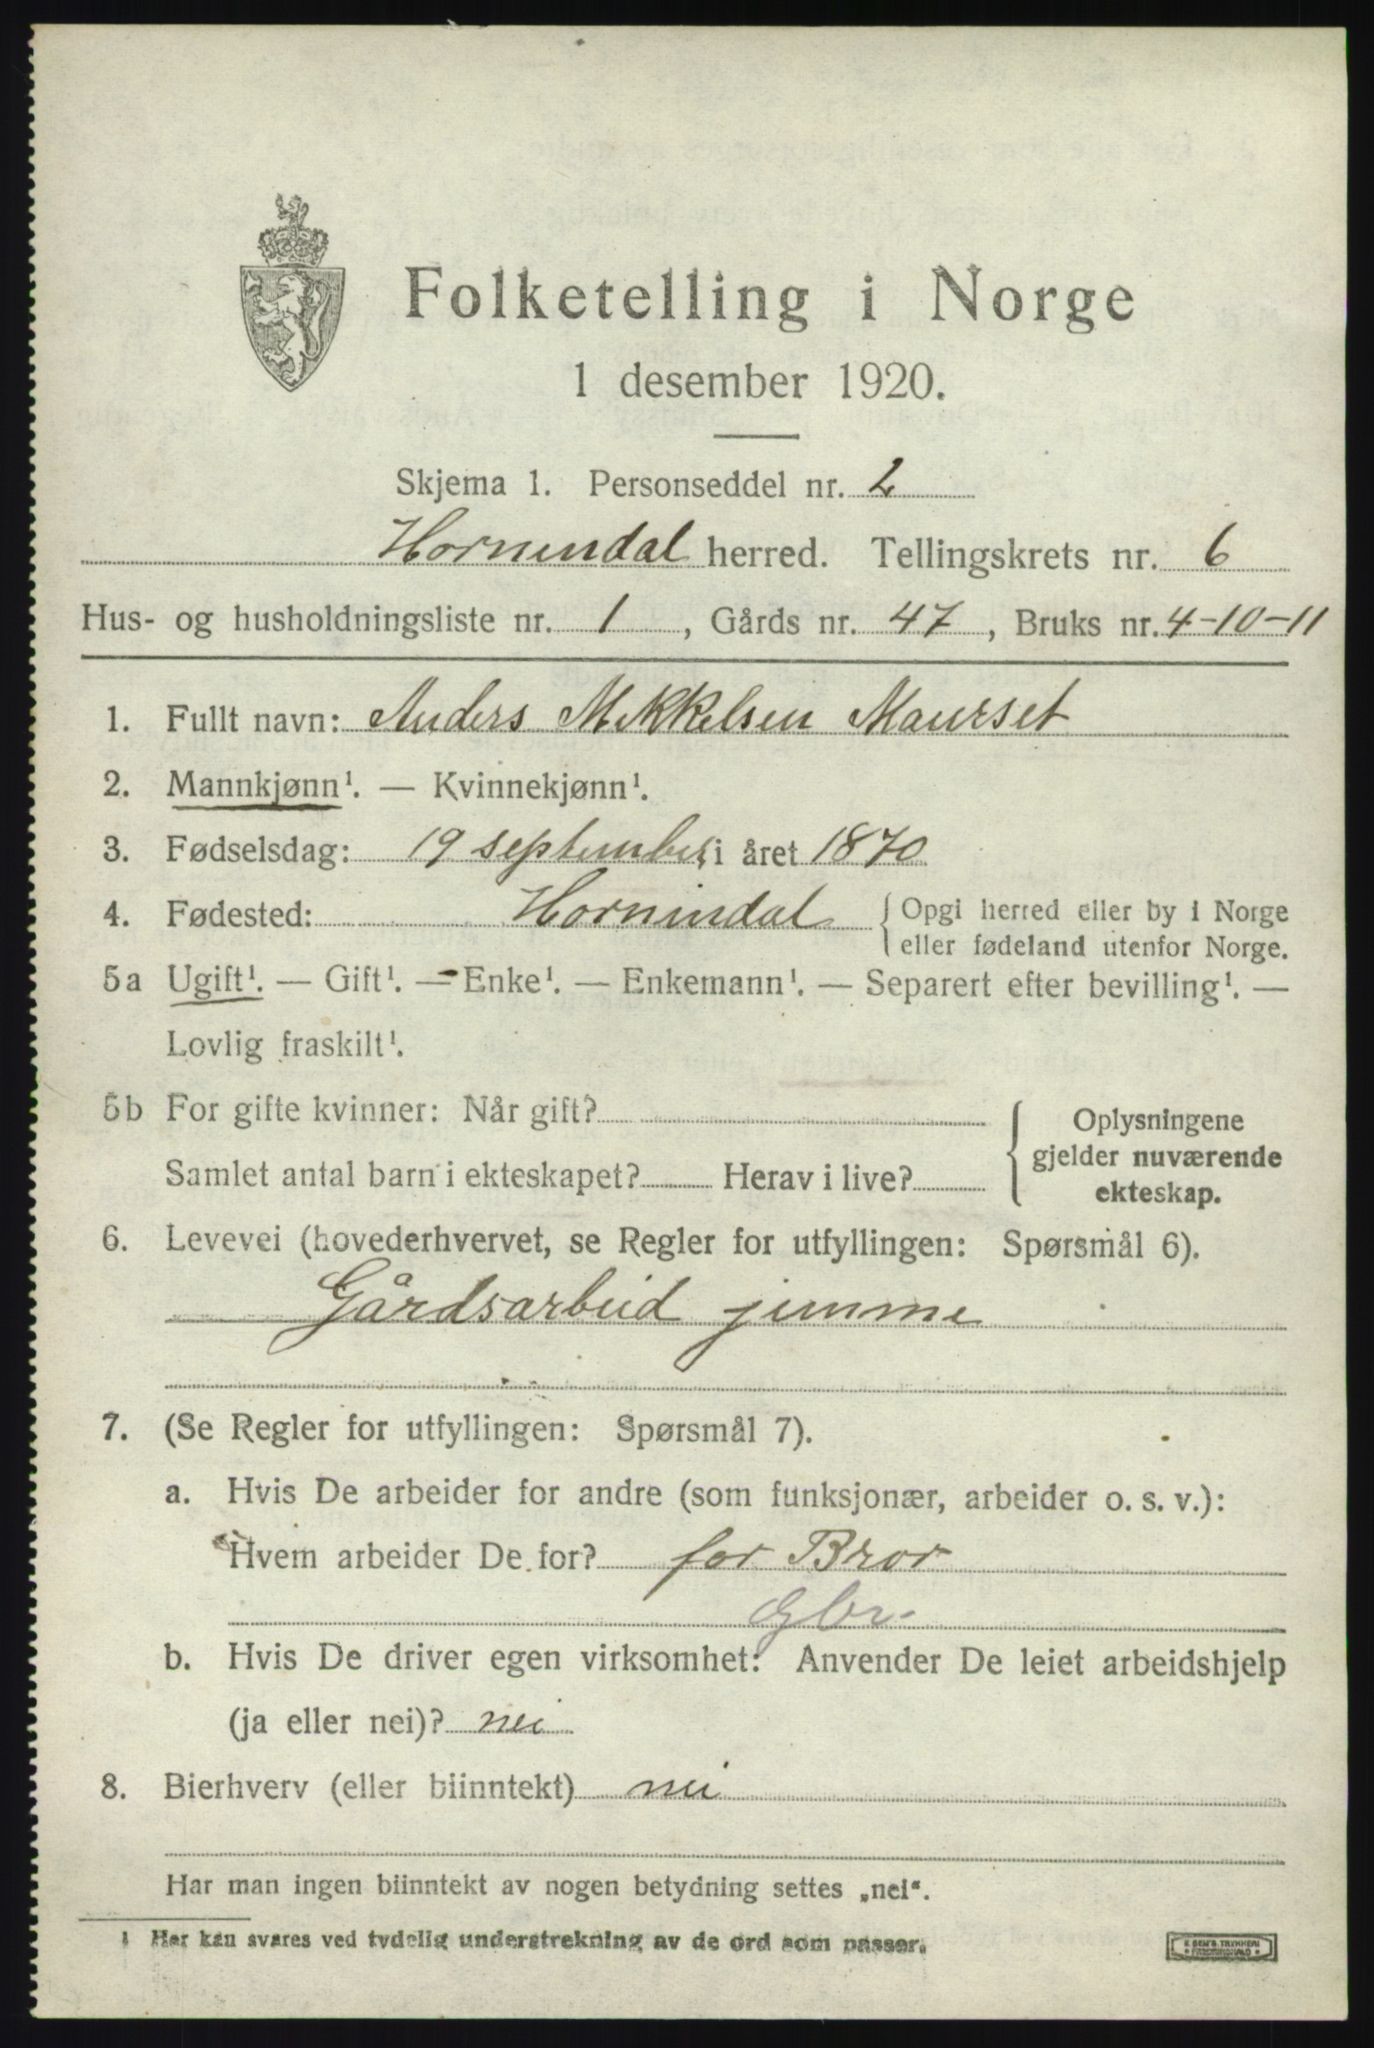 Folketelling i Norge
1 desember 1920.
Skjema 1. Personseddel nr. 2
Hornindal herred. Tellingskrets nr. 6
Hus- og husholdningsliste nr. 1, Gårds nr. 47, Bruks nr. 4-10-11
1. Fullt navn: Anders Mikkelsen Maurset
2. Mannkjønn¹. — Kvinnekjønn¹.
3. Fødselsdag: 19 september i året 1870
4. Fødested: Hornindal { Opgi herred eller by i Norge
eller fødeland utenfor Norge.
5a Ugift¹. — Gift¹. — Enke¹. — Enkemann¹. — Separert efter bevilling¹. —
Lovlig fraskilt¹.
5b For gifte kvinner: Når gift?
Samlet antal barn i ekteskapet? Herav i live?
{ Oplysningene
gjelder nuværende
ekteskap.
6. Levevei (hovederhvervet, se Regler for utfyllingen: Spørsmål 6).
Gårdsarbeid jemme
7. (Se Regler for utfyllingen: Spørsmål 7).
a. Hvis De arbeider for andre (som funksjonær, arbeider o. s. v.):
Hvem arbeider De for? for Bror
Gbr.
b. Hvis De driver egen virksomhet: Anvender De leiet arbeidshjelp
(ja eller nei)? nei
8. Bierhverv (eller biinntekt) nei
Har man ingen biinntekt av nogen betydning settes „nei“.
1 Her kan svares ved tydelig understrekning av de ord som passer.